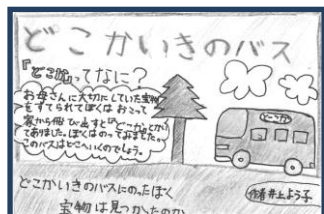 どこかいきのバス
『どこ沱ってなに?
お母さんに大切にしていた宝物
をすてられてぼくは おこって
家から飛び出すと"どこか"とか
てありました。ぼくはのってみました。
このバスはどこへいくのでしょう。
どこか
どこかいきのバスにのったぼく
作者 井上よう子
宝物は見つかったのか